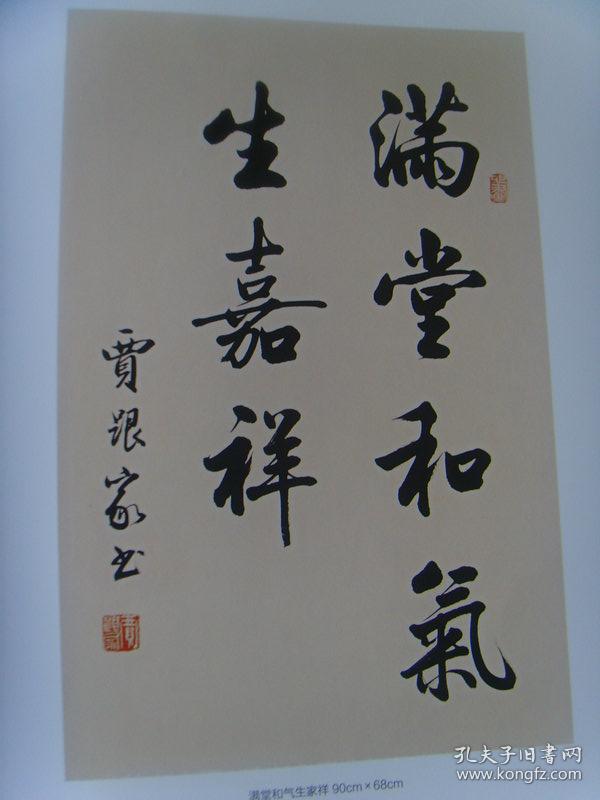 满堂和氣
生嘉祥
賈跟家书
满堂和气生家祥 90cm×68cm
孔夫子旧书网
www.kongfz.com